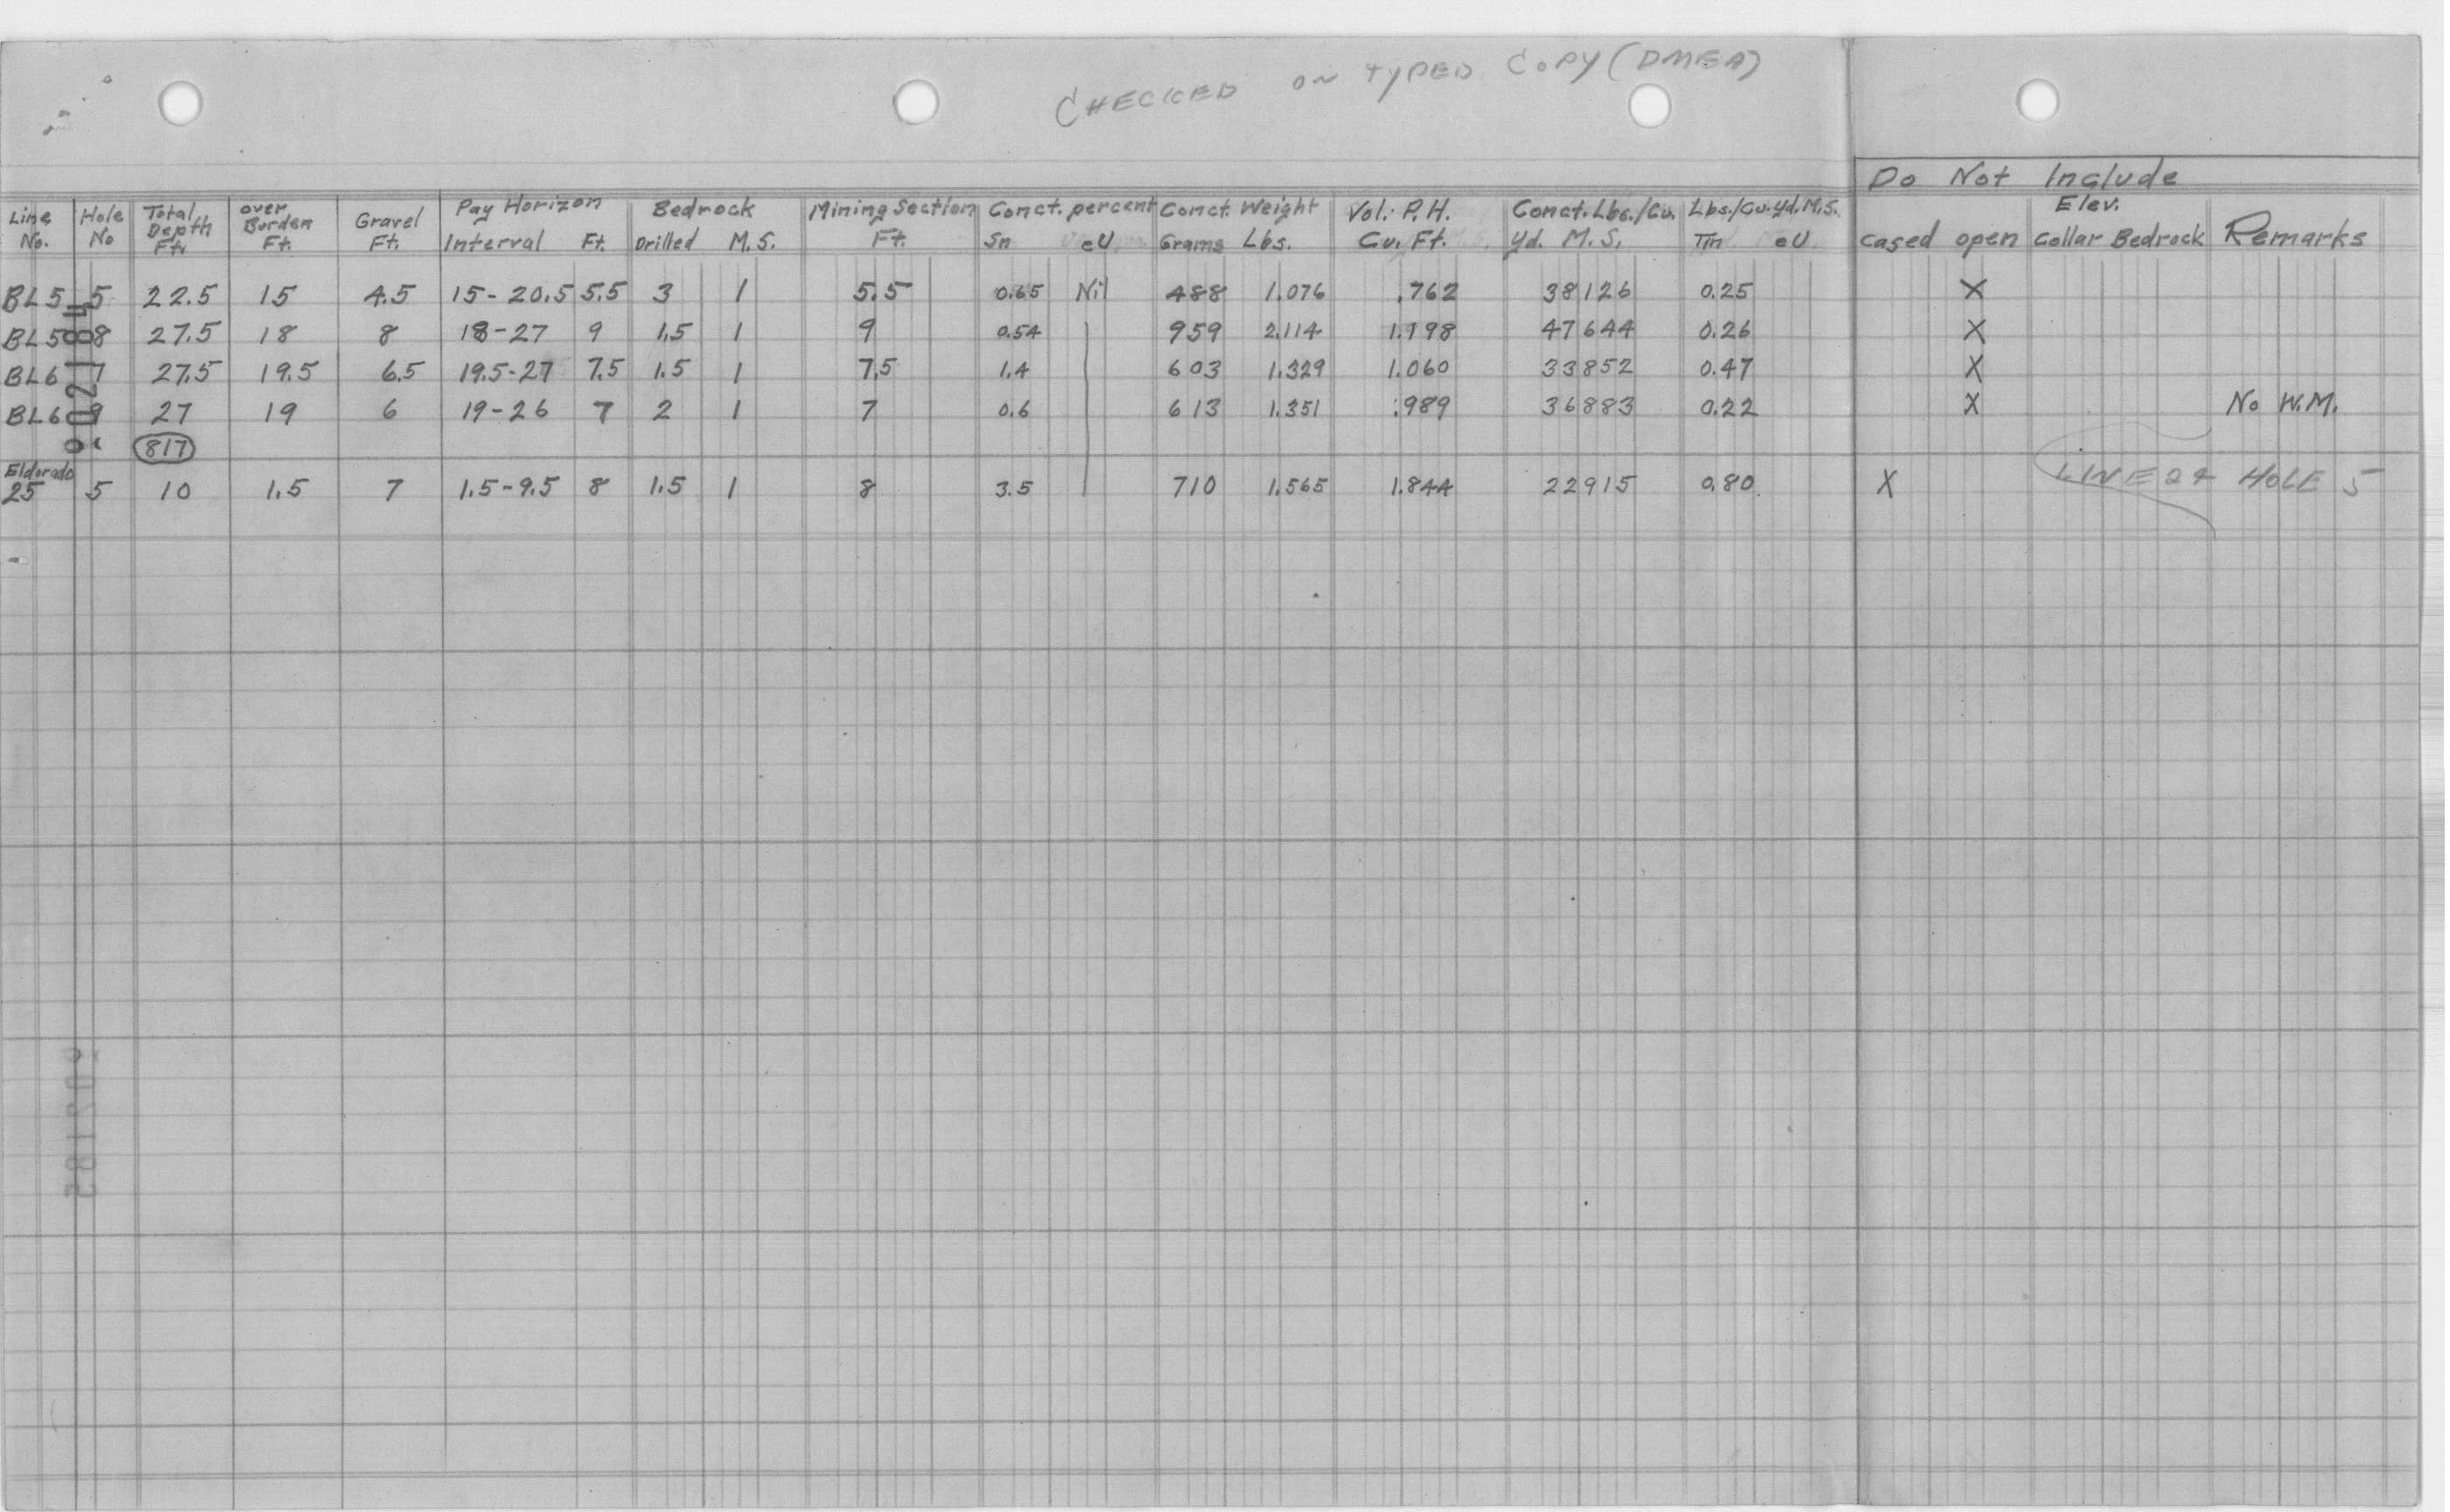 CHECKED ON TYPED COPY (DMEA)
Do Not Include
Line No. Hole No Total Depth Ft. over Burden Ft. Gravel Ft. Pay Horizon Interval Ft. Bedrock Drilled M.S. Mining Section Ft. Conct. percent Sn eU Conct. Weight Grams Lbs. Vol. P.H. Cu. Ft. Conct. Lbs./Cu. Yd. M.S. Lbs./Cu. Yd. M.S. Tin eU cased open Elev. Collar Bedrock Remarks
BL5 5 22.5 15 4.5 15-20.5 5.5 3 1 5.5 0.65 Nil 488 1.076 .762 38126 0.25 X
BL5 8 27.5 18 8 18-27 9 1.5 1 9 0.54 959 2.114 1.198 47644 0.26 X
BL6 7 27.5 19.5 6.5 19.5-27 7.5 1.5 1 7.5 1.4 603 1.329 1.060 33852 0.47 X
BL6 9 27 19 6 19-26 7 2 1 7 0.6 613 1.351 .989 36883 0.22 X No W.M.
817
Eldorado
25 5 10 1.5 7 1.5-9.5 8 1.5 1 8 3.5 710 1.565 1.844 22915 0.80 X LINE 24 HOLE 5